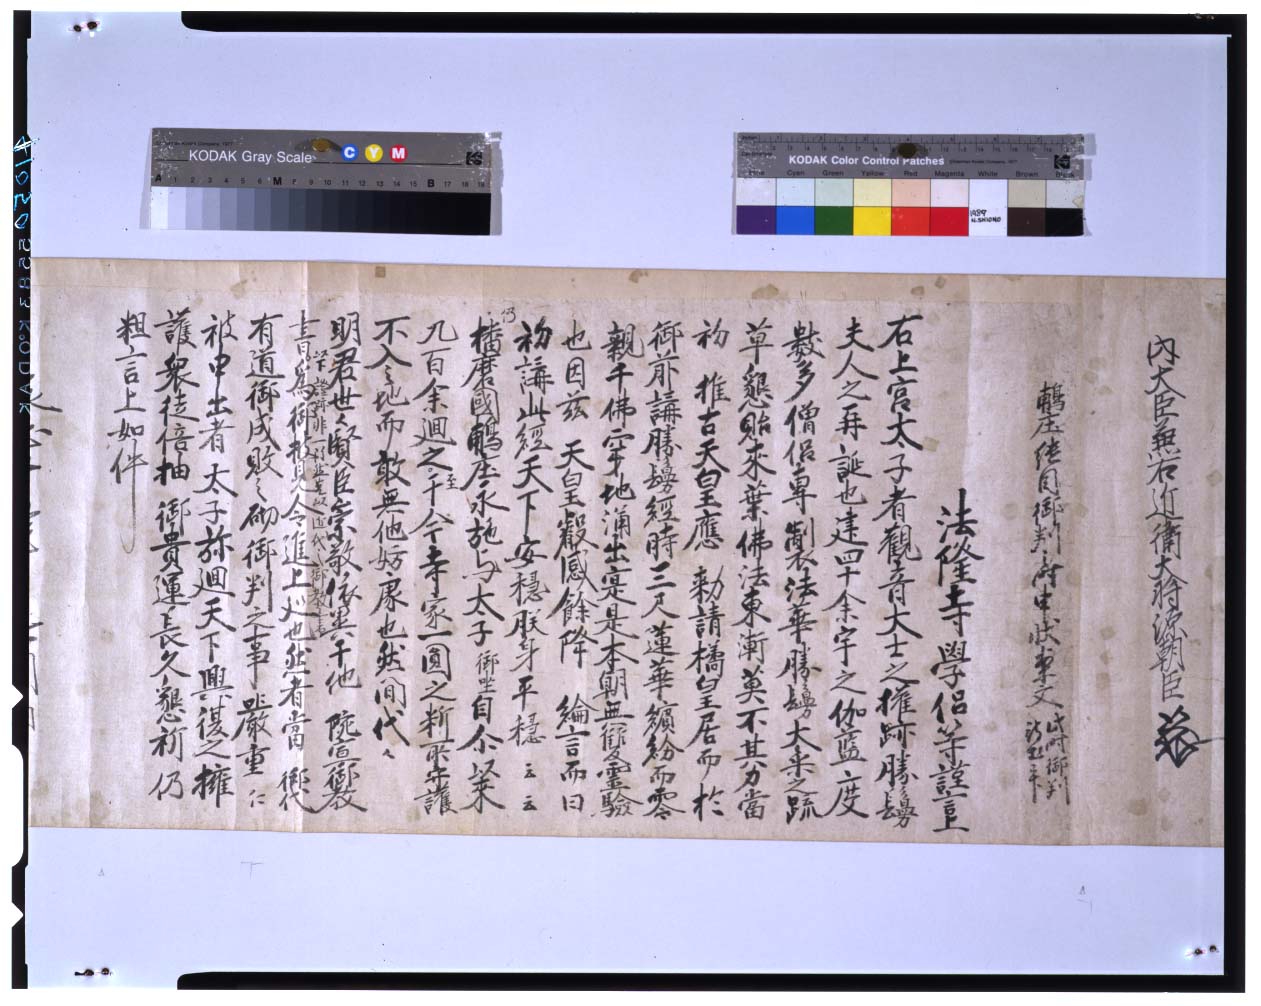 KODAK Gray Scale
C Y M
A 1 2 3 4 5 6 M 7 8 9 10 11 12 13 14 15 B 17 18 19
KODAK Color Control Patches
Blue Cyan Green Yellow Red Magenta White Brown Black
1989
N.SHIONO
内大臣兼右近衛大将源朝臣
鵤庄 御判 申状案文
此時御判
法隆寺學侶等謹言上
右上宮太子者觀音大士之権跡勝鬘
夫人之再誕也建四十余宇之伽藍度
數多僧侶専製法華勝鬘大乗之疏
草懇貽来葉佛法東漸莫不其力當
初 推古天皇應 勅請橘皇居而於
御前講勝鬘経時三尺蓮華繽紛而零
親千佛 地涌出寔是本朝無 霊驗
也因茲 天皇叡感餘降 綸言而曰
初講此經天下安穩朕身平穩云云
仍
播磨國鵤庄永施与太子御坐自尓以来
九百余廻之至于今寺家一圓之料所守護
不入之地而敢無他妨 也然間代々
明君世々賢臣崇敬依異于他 院宣御教
書為御披見令進上 也然者當 御代
有道御成敗之砌御判之事嚴重仁
被申出者太子弥廻天下興復之擁
護衆徒倍抽 御貴運長久懇祈仍
粗言上如件